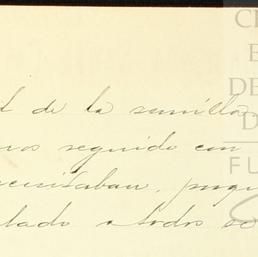 d de la semilla
mos seguido con
ecesitaban, porqu
lado a todos
C
E
DE
D
FU